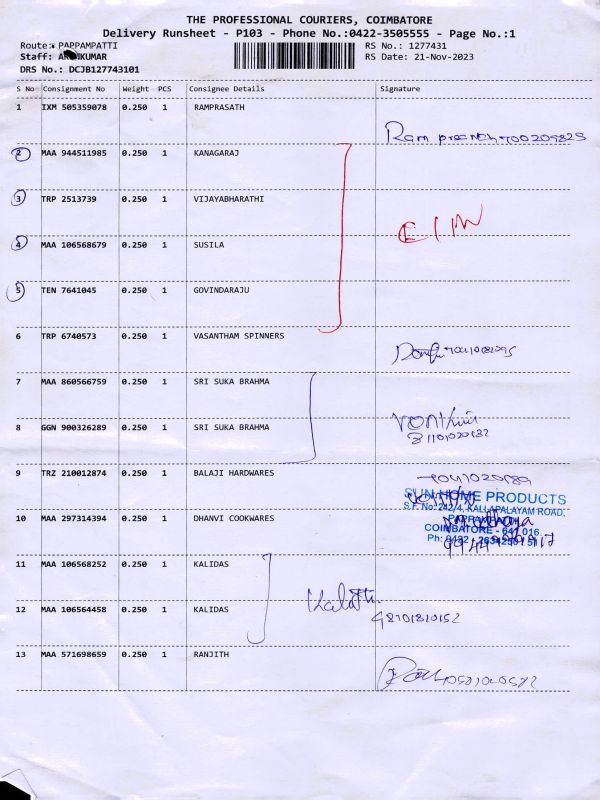 THE PROFESSIONAL COURIERS, COIMBATORE
Delivery Runsheet - P103 - Phone No.:0422-3505555 - Page No.:1
Route: PAPPAMPATTI
RS No.: 1277431
Staff:
RS Date: 21-Nov-2023
DRS No.: DCJB127743101
S No Consignment No Weight PCS Consignee Details Signature
1 IXM 505359078 0.250 1 RAMPRASATH
2 MAA 944511985 0.250 1 KANAGARAJ
3 TRP 2513739 0.250 1 VIJAYABHARATHI
4 MAA 106568679 0.250 1 SUSILA
5 TEN 7641045 0.250 1 GOVINDARAJU
6 TRP 6740573 0.250 1 VASANTHAM SPINNERS
7 MAA 860566759 0.250 1 SRI SUKA BRAHMA
8 GGN 900326289 0.250 1 SRI SUKA BRAHMA
9 TRZ 210012874 0.250 1 BALAJI HARDWARES
SUN HOME PRODUCTS
S.F. No: 242/4, KALLAPALAYAM ROAD,
10 MAA 297314394 0.250 1 DHANVI COOKWARES
COIMBATORE - 641 016
11 MAA 106568252 0.250 1 KALIDAS
12 MAA 106564458 0.250 1 KALIDAS
13 MAA 571698659 0.250 1 RANJITH